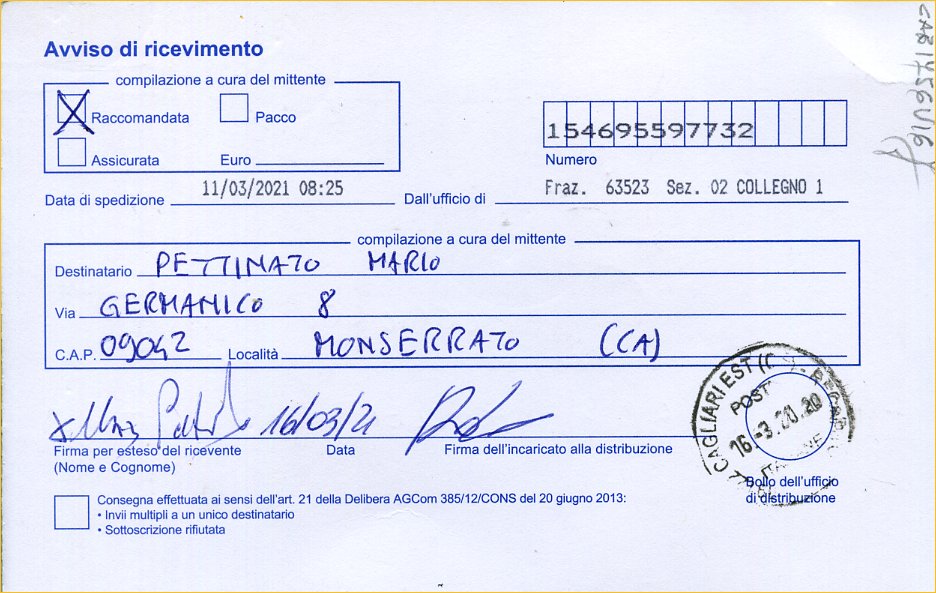 Avviso di ricevimento
compilazione a cura del mittente
Raccomandata
Pacco
Assicurata
Euro
154695597732
Numero
Data di spedizione 11/03/2021 08:25
Dall'ufficio di Fraz. 63523 Sez. 02 COLLEGNO 1
compilazione a cura del mittente
Destinatario PETTINATO MARIO
Via GERMANICO 8
C.A.P. 09042 Località MONSERRATO (CA)
16/03/21
Firma per esteso del ricevente
(Nome e Cognome)
Data
Firma dell'incaricato alla distribuzione
CAGLIARI EST
POST
16-3.20
Bollo dell'ufficio
di distribuzione
Consegna effettuata ai sensi dell'art. 21 della Delibera AGCom 385/12/CONS del 20 giugno 2013:
• Invii multipli a un unico destinatario
• Sottoscrizione rifiutata